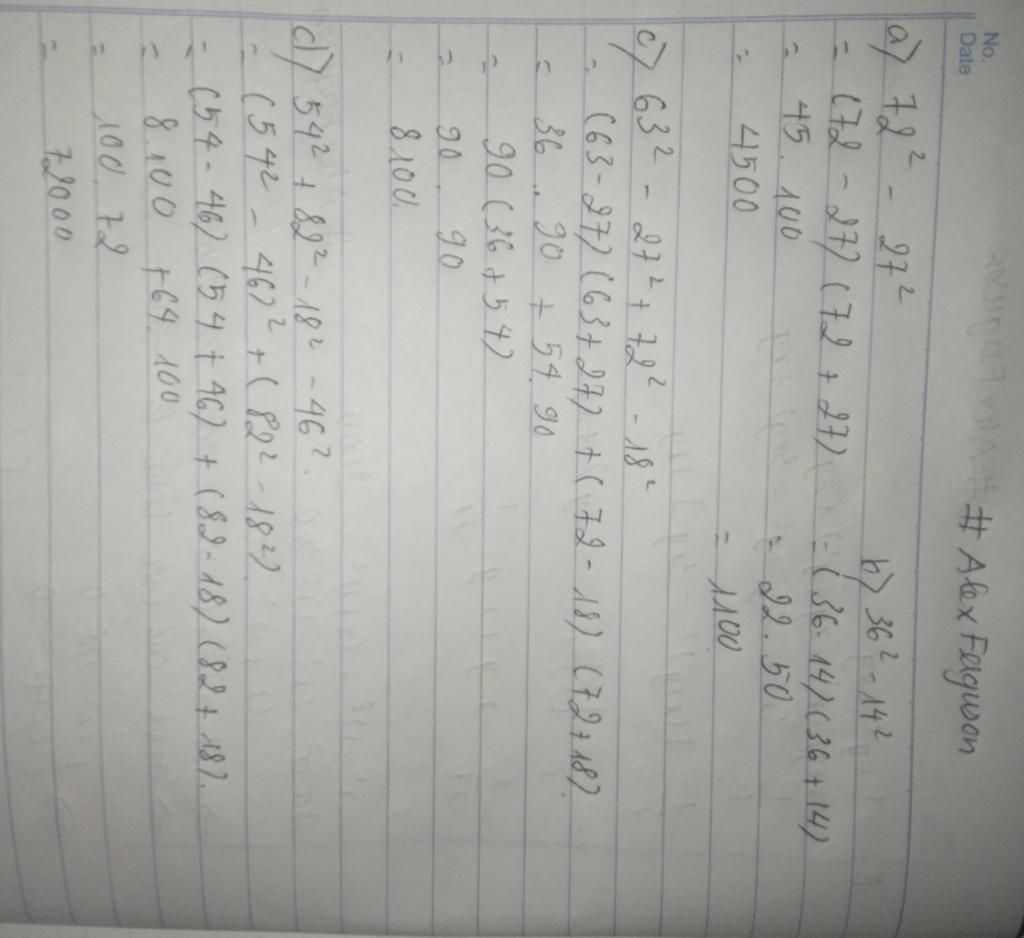 No.
Date
# Alex Ferguson
a) 72² - 27²
= (72 - 27) (72 + 27)
= 45 . 100
= 4500
b) 36² - 14²
= (36 - 14) (36 + 14)
= 22 . 50
= 1100
c) 63² - 27² + 72² - 18²
= (63 - 27) (63 + 27) + (72 - 18) (72 + 18).
= 36 . 90 + 54 . 90
= 90 (36 + 54)
= 90 . 90
= 8100
d) 54² + 82² - 18² - 46².
= (54² - 46)² + (82² - 18²)
= (54 - 46) (54 + 46) + (82 - 18) (82 + 18).
= 8.100 + 64.100
= 100. 72
= 72000